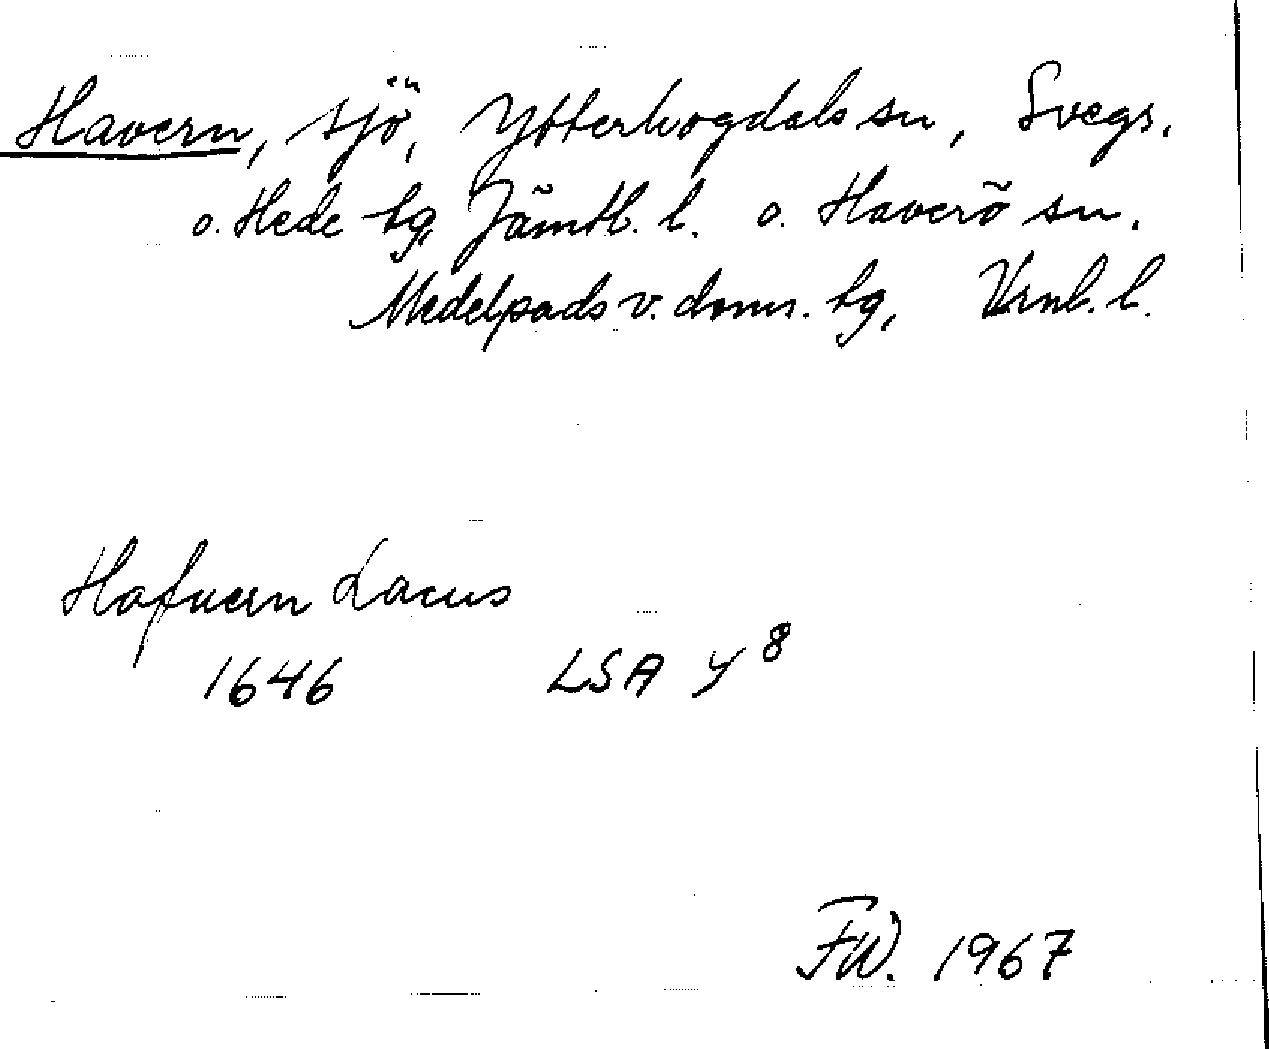 Havern, sjö, Ytterhogdals sn, Svegs.
o. Hede tg, Jämtl. l. o. Haverö sn.
Medelpads v. doms. tg, Vrnl. l.
Hafuern Lacus
1646 LSA y 8
FW. 1967